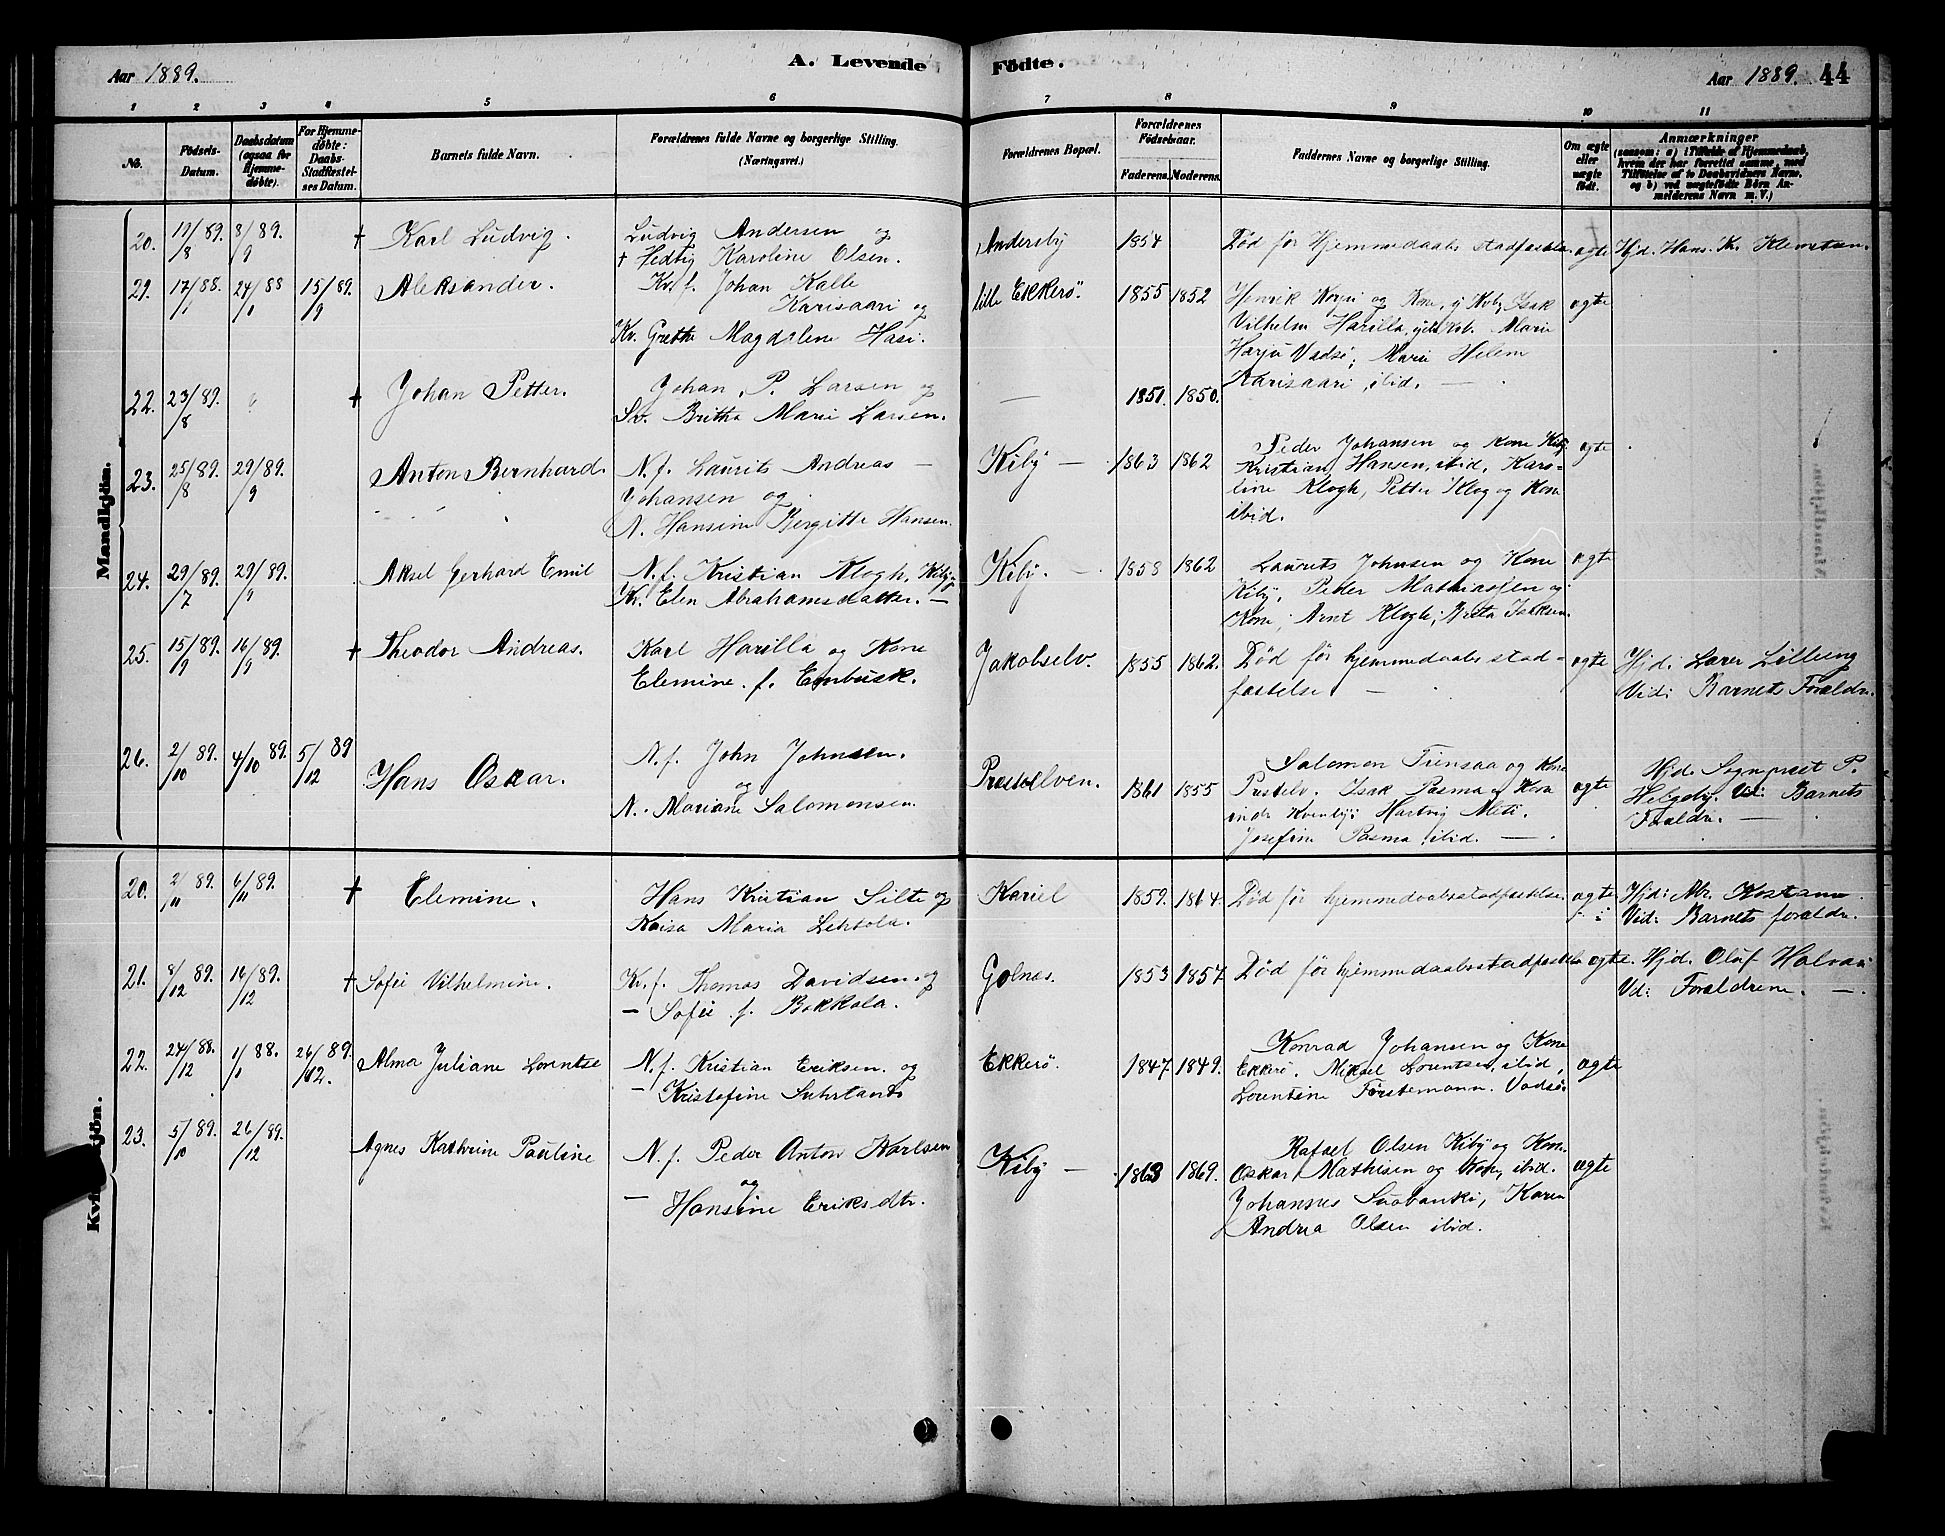 Aar 1889.
A. Levende
Födte.
Aar 1889. 44
1 2 3 4 5 6 7 8 9 10 11
No.
Födsels-Datum.
Daabsdatum (ogsaa for Hjemme-døbte).
For Hjemme-døbte: Daabs-Stadfæstel-ses Datum.
Barnets fulde Navn.
Forældrenes fulde Navne og borgerlige Stilling.
(Næringsvei.)
Forældrenes Bopæl.
Forældrenes Födselsaar.
Faderens. Moderens.
Faddernes Navne og borgerlige Stilling.
Om ægte eller uægte født.
Anmærkninger
(saasom: a) i Tilfælde af Hjemmedaab,
hvem der har forrettet samme, med
Tilføielse af to Daabsvidners Navne,
og b) ved uægtefødte Börn An-
melderens Navn m. V.)
Mandkjön.
20. 12/8 89. 8/9 89. † Karl Ludvig. Ludvig Andersen og Andersby 1854 Død før Hjemmedaabs ægte Hjd. Hans Kr.
† Hedvig Karoline Olsen.
29. 17/1 88. 24/1 88 15/9 89. Aleksander. Kv. f. Johan Kalle lille Ekkerö. 1855 1852 Henrik og Kone, Isak ægte
Karisaari og Vilhelm Harilla, Marie
Kv. Grethe Magdalene Hasi. Harju Vadsö, Marie Helene
Karisaari, ibid. —
22. 23/8 89. † Johan Petter. Johan P. Larsen og — 1851. 1850.
Britha Marie Larsen.
23. 25/8 89. 29/9 89. Anton Bernhard. N. f. Laurits Andreas — Kiby — 1863 1862 Peder Johansen og Kone Kiby ægte
Johansen og Kristian Hansen, ibid, Karo-
N. Hansine Bergitte Hansen. line Klogh, Petter Klog og Kone
ibid.
24. 29/7 89. 29/9 89. Aksel Gerhard Emil N. f. Kristian Klogh, Kiby Kiby. — 1858 1862 Laurits Johnsen og Kone ægte
Kv. Elen Abrahamsdatter. — Kiby, Peder Mathiassen og
Kone, Arnt Klogh,
25. 15/9 89. 16/9 89. † Theodor Andreas. Karl Harilla og Kone Jakobselv. 1855 1862. Død før hjemmedaabs stad- ægte Hjd: Lærer Lilleeng
Elemine f. Enbusk. fæstelse — Vid: Barnets Forældre.
26. 2/10 89. 4/10 89. 5/12 89 Hans Oskar. N. f. John Johnsen. Præstelven. 1861 1855 Salomon og Kone ægte Hjd. Sognepræst P.
og Præstelv. Isak Pasma og Kone Helgeby. Vid: Barnets
N. Mariane Salomonsen Hartvig Meti. Forældre. —
Josefine Pasma ibid. —
Kvindekjön.
20. 2/11 89. 6/11 89. † Elemine. Hans Kristian Silte og Kariel 1859. 1864. Død før hjemmedaabsstadfæstelse. ægte Hjd: Kostamo
Kaisa Maria Lehtola. Vid: Barnets forældr.
21. 8/12 89. 16/12 89. † Sofie Vilhelmine. Kv. f. Thomas Davidsen og Golnæs. 1853 1857. Død før hjemmedaabsstadfæstelse ægte. Hjd. Oluf Halvari
— Sofie f. Bokkola. Vd: Forældrene. —
22. 24/12 88. 1/1 88. 26/12 89. Alma Juliane Lorentse N. f. Kristian Eriksen og Ekkerö. 1847. 1849. Konrad Johansen og Kone ægte
— Kristofine Suhrland Ekkerö. Mikael Lorentsen, ibid,
Lorentine Förstemann. Vadsö
23. 5/10 89. 26/12 89. Agnes Kathrine Pauline N. f. Peder Anton Karlsen Kiby — 1863 1869. Rafael Olsen Kiby og Kone. ægte
og Oskar Mathisen og Kone, ibid.
— Hansine Eriksdtr. Johannes Karen
Andrea Olsen ibid.